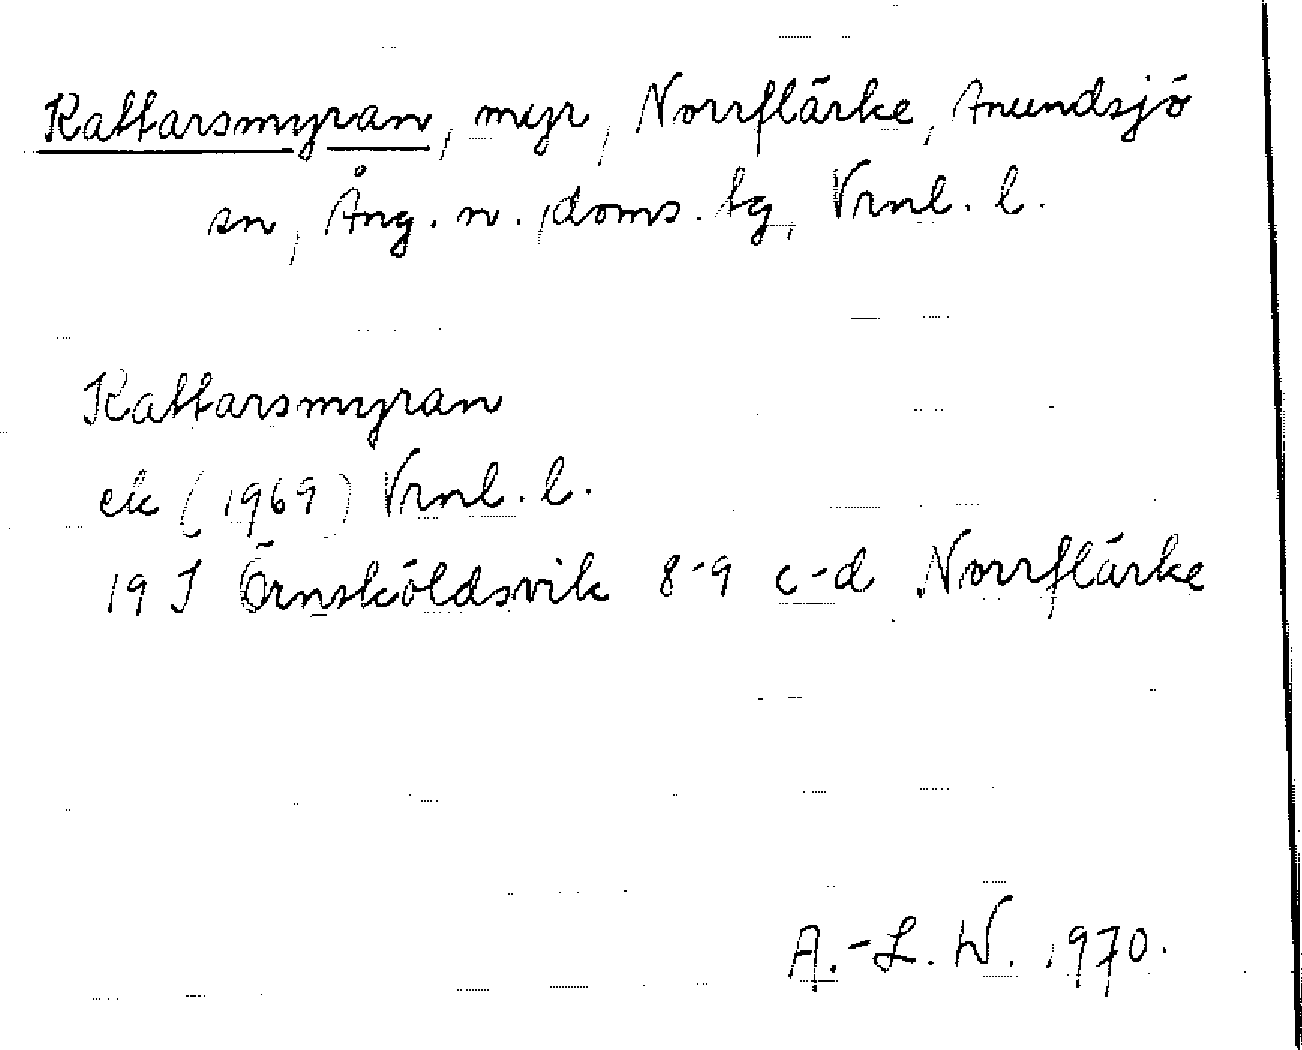 Kattarsmyran, myr, Norrflärke, Anundsjö
sn, Ång. n. doms. tg, Vrnl. l.
Kattarsmyran
ek (1969) Vrnl. l.
19 J Örnsköldsvik 8-9 c-d Norrflärke
A.-L. W. 1970.